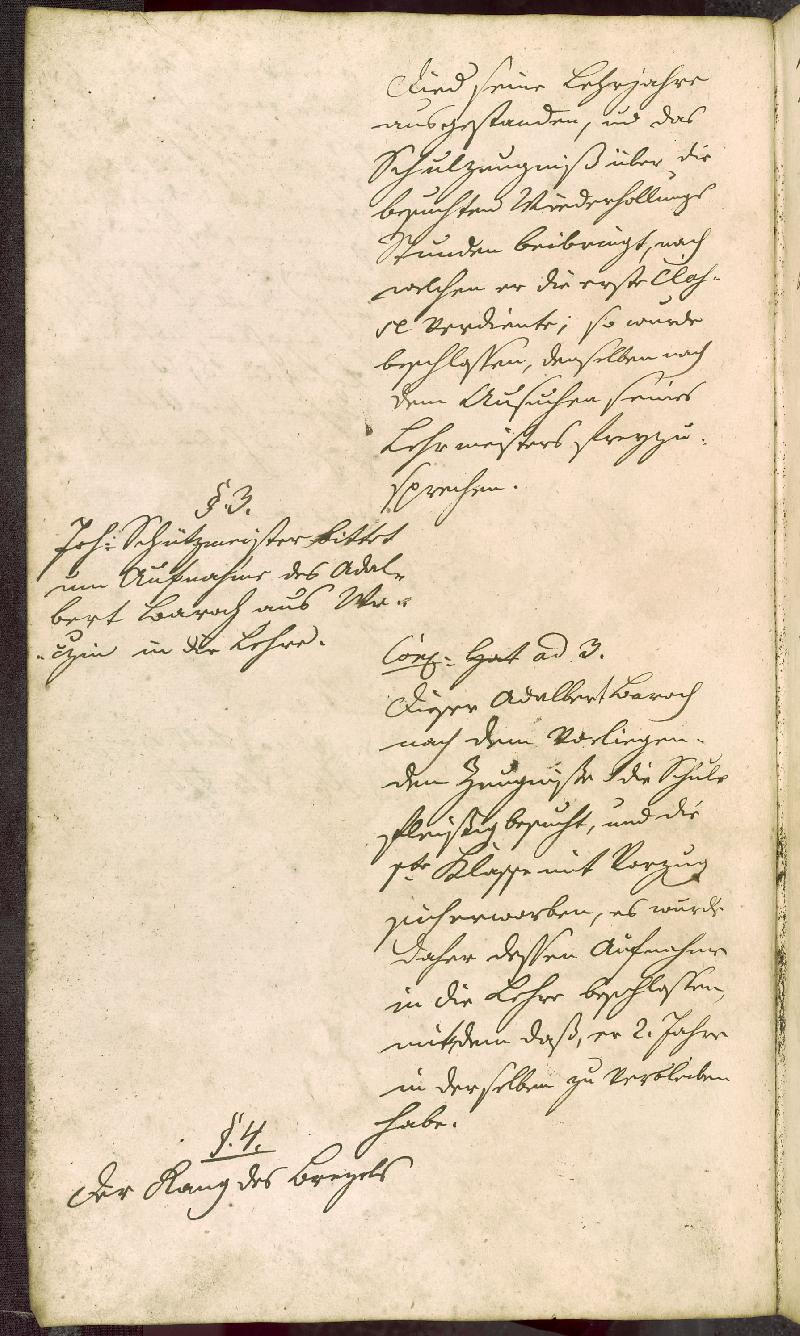 Died seine Lehrjahre
ausgestanden, und das
Schulzeugniß über die
besuchten Wiederhollungs
Stunden beibringt, nach
welchen er die erste Clas-
se verdiente; so wurde
beschlossen, denselben nach
dem Ansuchen seines
Lehrmeisters freyzu-
sprechen.
§. 3.
Joh: Schützmeister bittet
um Aufnahme des Adal-
bert Baroch aus We-
-czin in die Lehre.
Hat ad 3.
Dieser Adalbert Baroch
nach dem vorliegen-
den Zeugniße die Schule
fleissig besucht, und die
1te Klasse mit Vorzug
sich erworben, es wurde
daher dessen Aufnahme
in die Lehre beschlossen,
mitdem daß, er 2. Jahre
in derselben zu verbleiben
habe.
§. 4.
Der Rang des